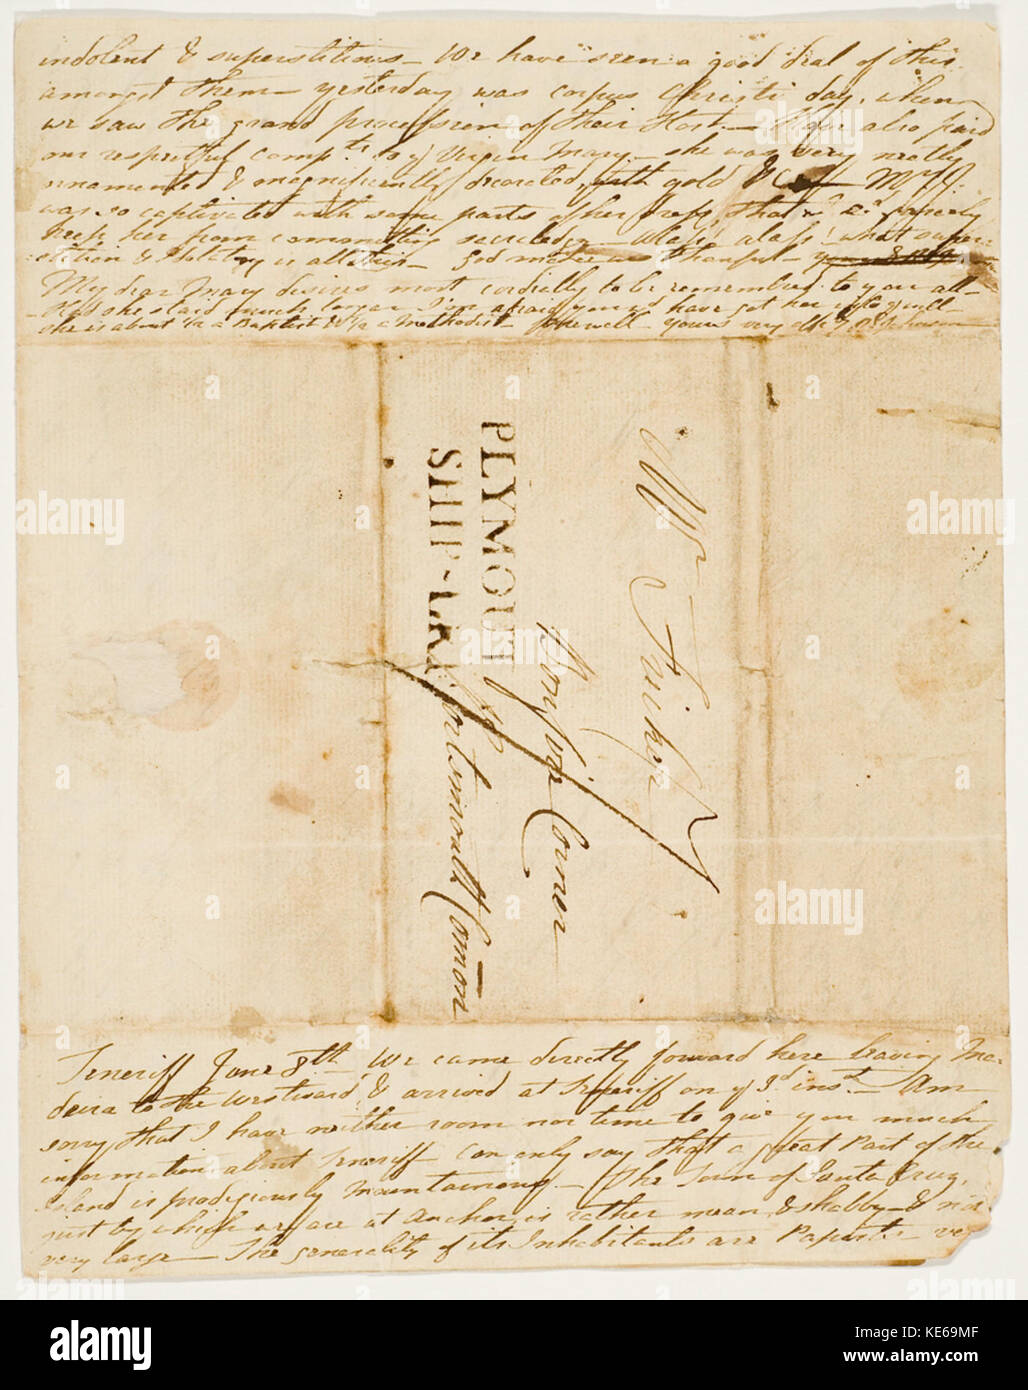 indolent & superstitious – We have seen a good deal of this
amongst them – yesterday was corpus Christi day, when
we saw the grand procession of their Host – I have also paid
our respectful compts. to ye Virgin Mary – she was very neatly
ornamented & magnificently decorated, with gold &c – Mr J.
was so captivated with some parts of her dress, that he cd. scarcely
keep her from committing sacriledge – alass! alass! what super
stition & Idolatry is all this – God make us thankful –
My dear Mary desires most cordially to be remembered to you all –
Had she staid much longer I'm afraid you'd have got her
she is about 1/2 a Baptist & 1/2 a Methodist – farewell yours very affy R Johnson
Mr Fricker
Bonfoy Corner
PLYMOUTH
SHIP-LRE
Portsmouth Comon
Teneriff June 8th We came directly forward here leaving Ma-
deira to the Westward & arrived at Teneriff on ye 3d inst. I am
sorry that I have neither room nor time to give you much
information about Teneriff Can only say that a great Part of the
Island is prodigiously Mountainous – The Town of Santa Cruz,
just by which we are at Anchor is rather mean & shabby – & not
very large – The generality of its Inhabitants are Papists – ve
alamy
Image ID: KE69MF
www.alamy.com